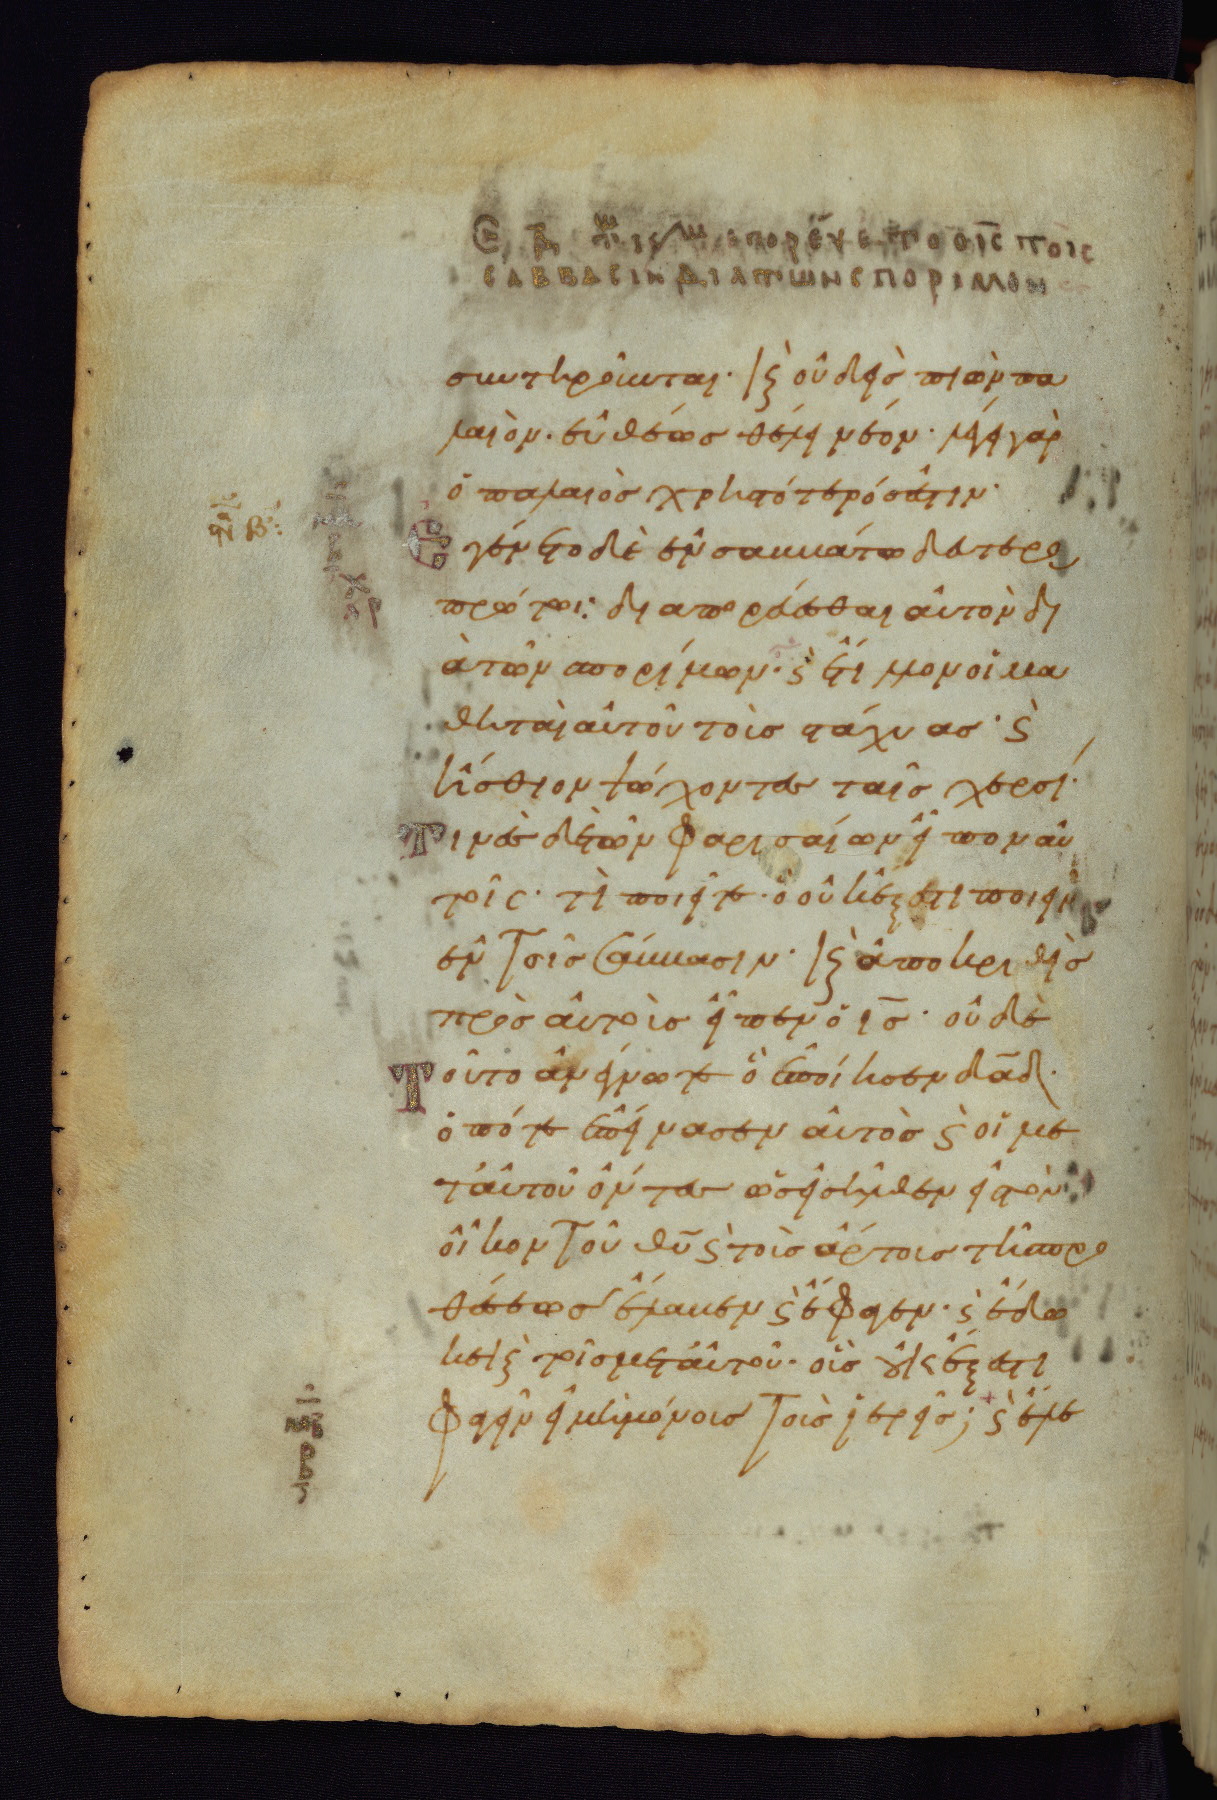 ἐπορεύετο ὁ ις τοῖς
σάββασιν διὰ τῶν σπορίμων
συντηροῦνται· καὶ οὐδεὶς πιὼν πα
λαιὸν· εὐθέως θέλει νέον· λέγει γὰρ
ὁ παλαιὸς χρηστότερός ἐστιν·
Ἐγένετο δὲ ἐν σαββάτω δευτερο
πρώτωι· διαπορεύεσθαι αὐτὸν δι
ὰ τῶν σπορίμων· καὶ ἔτιλλον οἱ μα
θηταὶ αὐτοῦ τοὺς στάχυας· καὶ
ἤσθιον ψώχοντες ταῖς χερσί·
Τινὲς δὲ τῶν φαρισαίων εἶπον αὐ
τοῖς· τί ποιεῖτε· ὃ οὐκ ἔξεστι ποιεῖν
ἐν τοῖς σάββασιν· καὶ ἀποκριθεὶς
πρὸς αὐτοὺς εἶπεν ὁ ις· οὐδὲ
Τοῦτο ἀνέγνωτε ὃ ἐποίησεν δαδ·
ὁπότε ἐπείνασεν αὐτὸς καὶ οἱ με
τ αὐτοῦ ὄντες ὡς εἰσῆλθεν εἰς τὸν
οἶκον τοῦ θυ καὶ τοὺς ἄρτους τῆς προ
θέσεως ἔλαβεν καὶ ἔφαγεν· καὶ ἔδω
κε καὶ τοῖς μετ αὐτοῦ· οὓς οὐκ ἔξεστι
φαγεῖν εἰ μὴ μόνους τοὺς ἱερεῖς; καὶ ἔλε